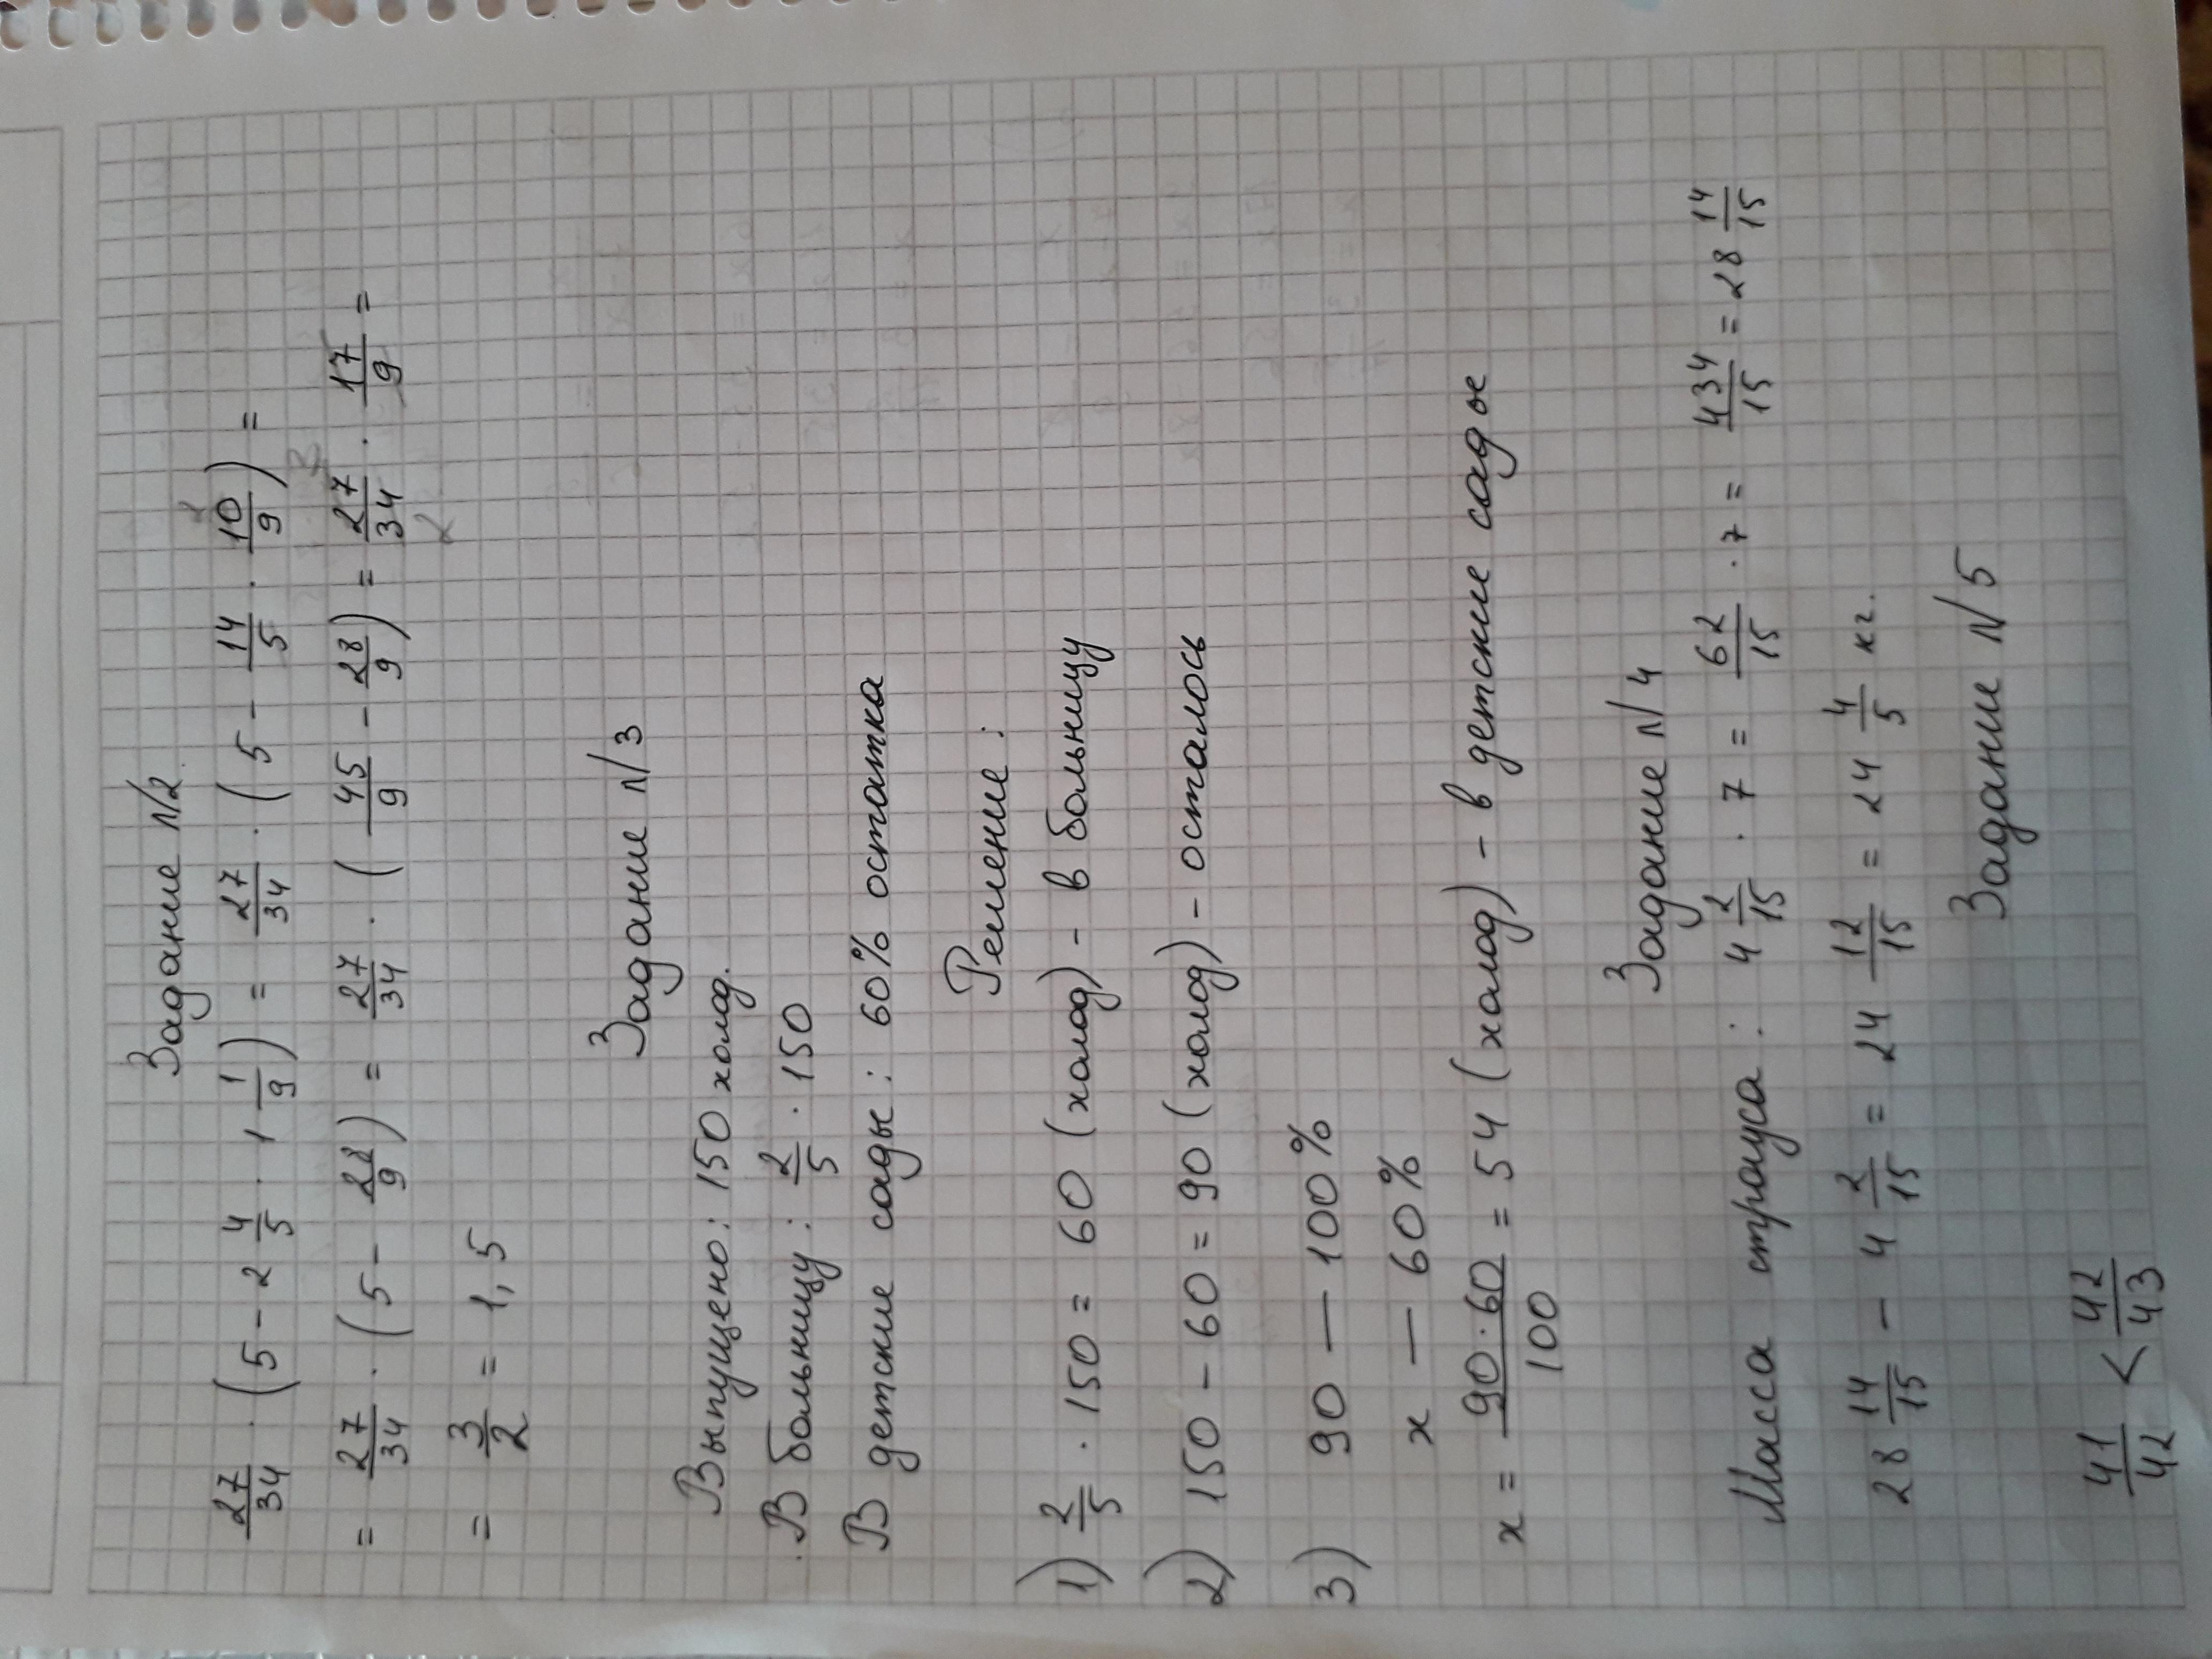 Задание №2
27/34 · (5 - 2 4/5 · 1 1/9) = 27/34 · (5 - 14/5 · 10/9) =
= 27/34 · (5 - 28/9) = 27/34 · (45/9 - 28/9) = 27/34 · 17/9 =
= 3/2 = 1,5
Задание №3
Выпущено: 150 холод.
В больницу: 2/5 · 150
В детские сады: 60% остатка
Решение:
1) 2/5 · 150 = 60 (холод) - в больницу
2) 150 - 60 = 90 (холод) - осталось
3) 90 — 100%
х — 60%
х = 90·60/100 = 54 (холод) - в детские сады
Задание №4
Масса страуса: 4 2/15 · 7 = 62/15 · 7 = 434/15 = 28 14/15
28 14/15 - 4 2/15 = 24 12/15 = 24 4/5 кг.
Задание №5
41/42 < 42/43